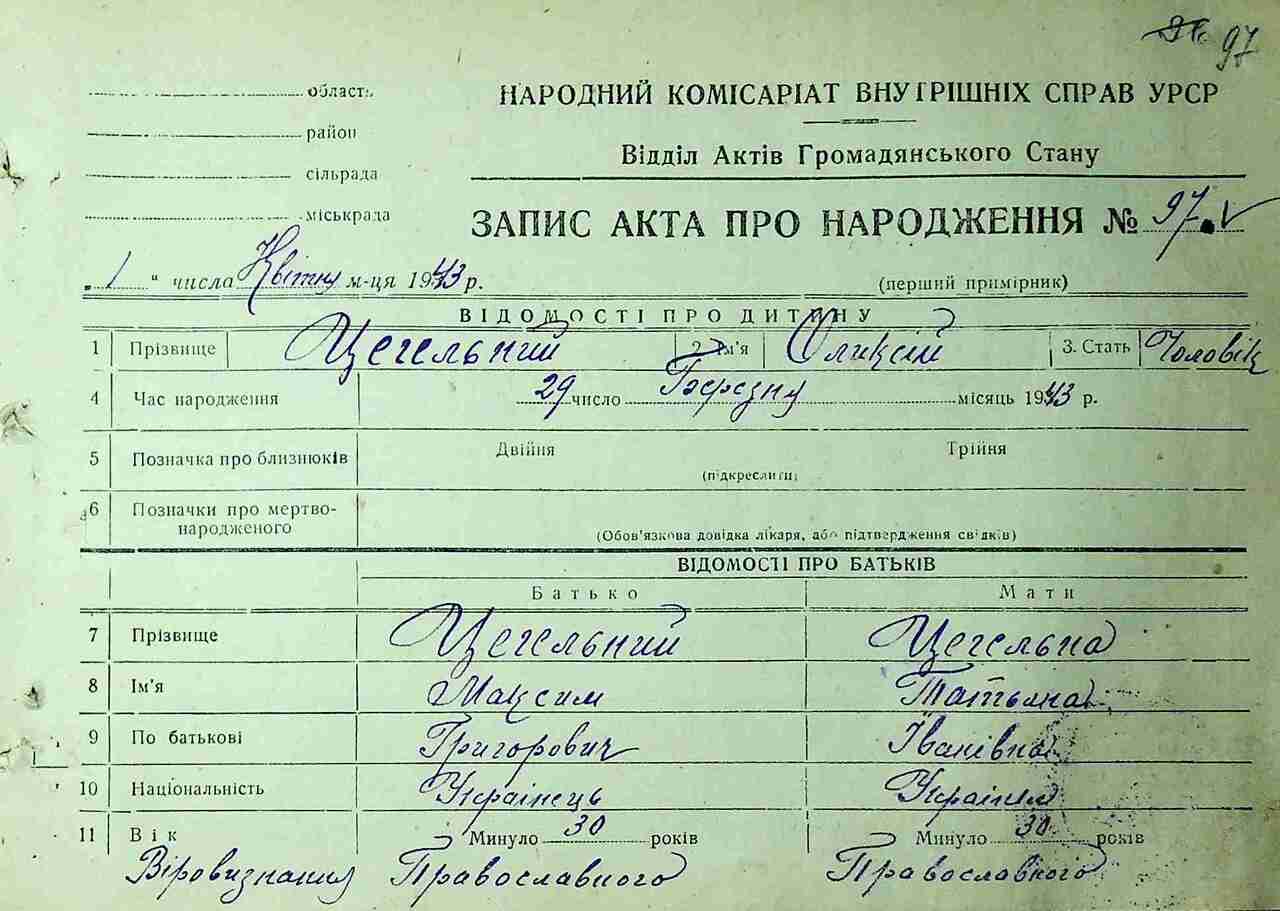 97
область
НАРОДНИЙ КОМІСАРІАТ ВНУТРІШНІХ СПРАВ УРСР
район
Відділ Актів Громадянського Стану
сільрада
міськрада
ЗАПИС АКТА ПРО НАРОДЖЕННЯ № 97
„1" числа Квітня м-ця 1943 р.
(перший примірник)
ВІДОМОСТІ ПРО ДИТИНУ
1 Прізвище Цегельний 2. Ім'я Олексій 3. Стать Чоловік
4 Час народження 29 число Березня місяць 1943 р.
5 Позначка про близнюків Двійня Трійня
(підкреслити)
6 Позначки про мертво-
народженого
(Обов'язкова довідка лікаря, або підтвердження свідків)
ВІДОМОСТІ ПРО БАТЬКІВ
Батько Мати
7 Прізвище Цегельний Цегельна
8 Ім'я Максим Татьяна
9 По батькові Григорович Іванівна
10 Національність Українець Українка
11 Вік Минуло 30 років Минуло 30 років
Віровизнання Православного Православного